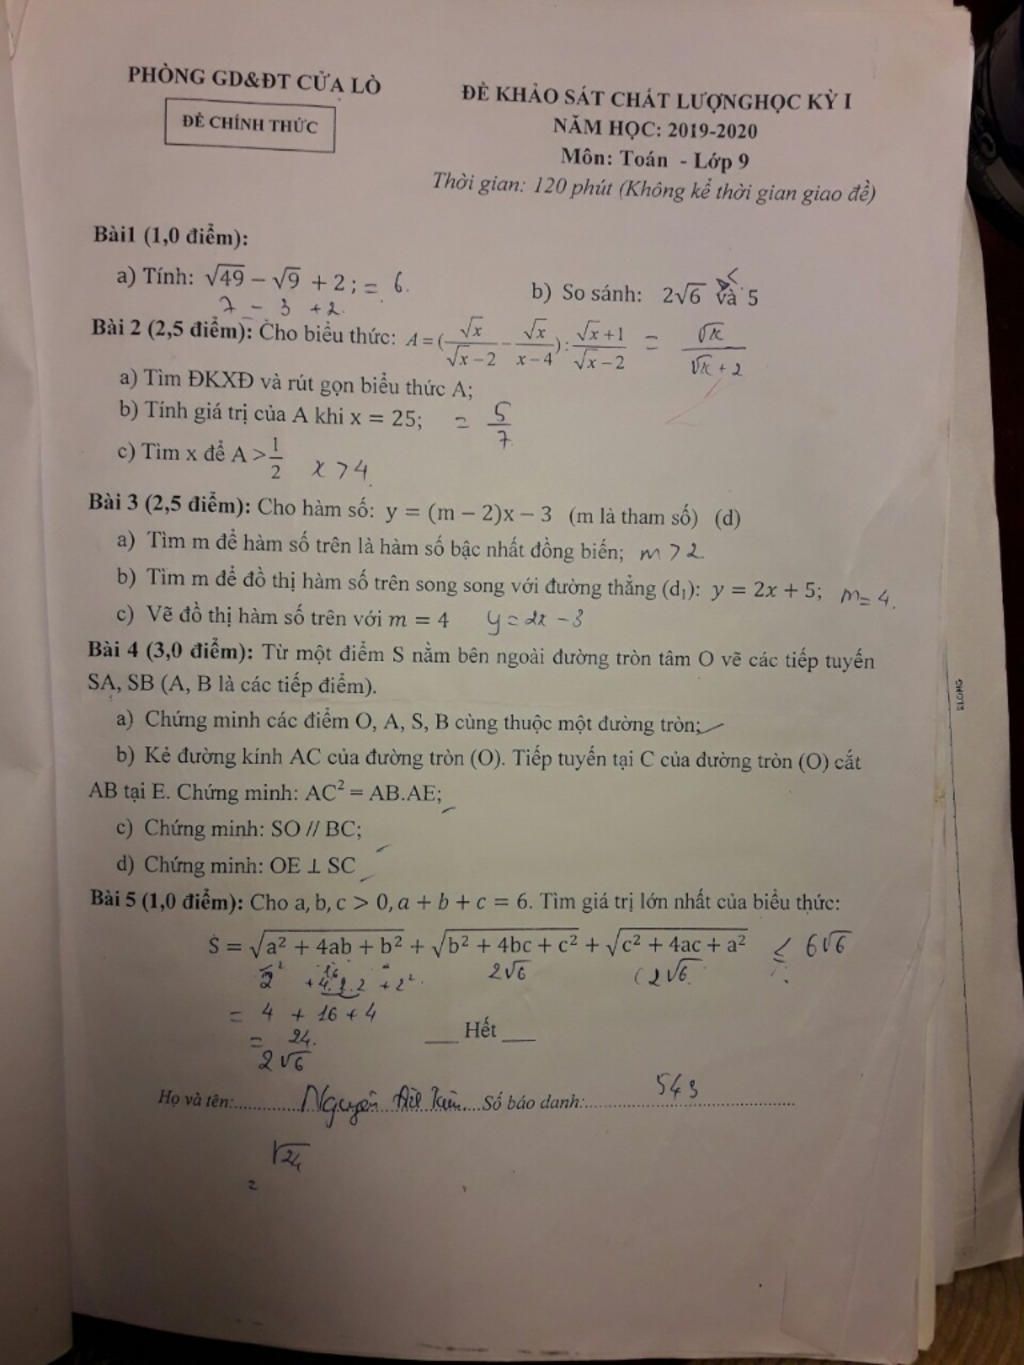 PHÒNG GD&ĐT CỬA LÒ
ĐỀ CHÍNH THỨC
ĐỀ KHẢO SÁT CHẤT LƯỢNGHỌC KỲ I
NĂM HỌC: 2019-2020
Môn: Toán - Lớp 9
Thời gian: 120 phút (Không kể thời gian giao đề)
Bài1 (1,0 điểm):
a) Tính: √49 − √9 + 2 ; = 6.
7 − 3 + 2.
b) So sánh: 2√6 và 5
<
Bài 2 (2,5 điểm): Cho biểu thức: A = (√x/(√x − 2) − √x/(x − 4)) : (√x + 1)/(√x − 2) = √x/(√x + 2)
a) Tìm ĐKXĐ và rút gọn biểu thức A;
b) Tính giá trị của A khi x = 25; = 5/7
c) Tìm x để A > 1/2 x > 4
Bài 3 (2,5 điểm): Cho hàm số: y = (m − 2)x − 3 (m là tham số) (d)
a) Tìm m để hàm số trên là hàm số bậc nhất đồng biến; m > 2
b) Tìm m để đồ thị hàm số trên song song với đường thẳng (d₁): y = 2x + 5; m = 4.
c) Vẽ đồ thị hàm số trên với m = 4 y = 2x − 3
Bài 4 (3,0 điểm): Từ một điểm S nằm bên ngoài đường tròn tâm O vẽ các tiếp tuyến
SA, SB (A, B là các tiếp điểm).
a) Chứng minh các điểm O, A, S, B cùng thuộc một đường tròn;
b) Kẻ đường kính AC của đường tròn (O). Tiếp tuyến tại C của đường tròn (O) cắt
AB tại E. Chứng minh: AC² = AB.AE;
c) Chứng minh: SO // BC;
d) Chứng minh: OE ⊥ SC
Bài 5 (1,0 điểm): Cho a, b, c > 0, a + b + c = 6. Tìm giá trị lớn nhất của biểu thức:
S = √(a² + 4ab + b²) + √(b² + 4bc + c²) + √(c² + 4ac + a²) ≤ 6√6
2² + 4.2.2 + 2². 2√6 (2√6.
16
= 4 + 16 + 4
= 24.
2√6
___ Hết ___
Họ và tên: Nguyễn Số báo danh: 543
√24
=